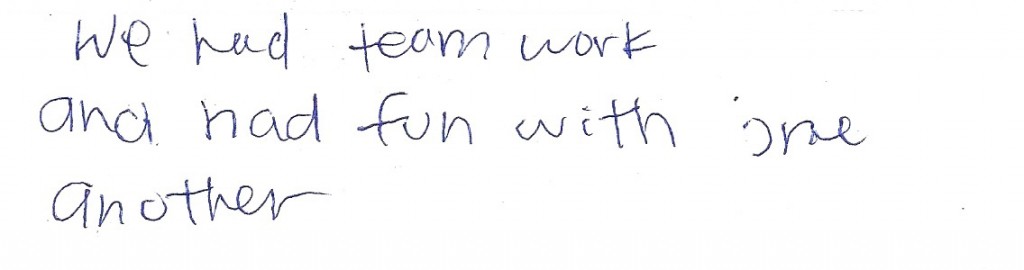 We had team work
and had fun with one
another